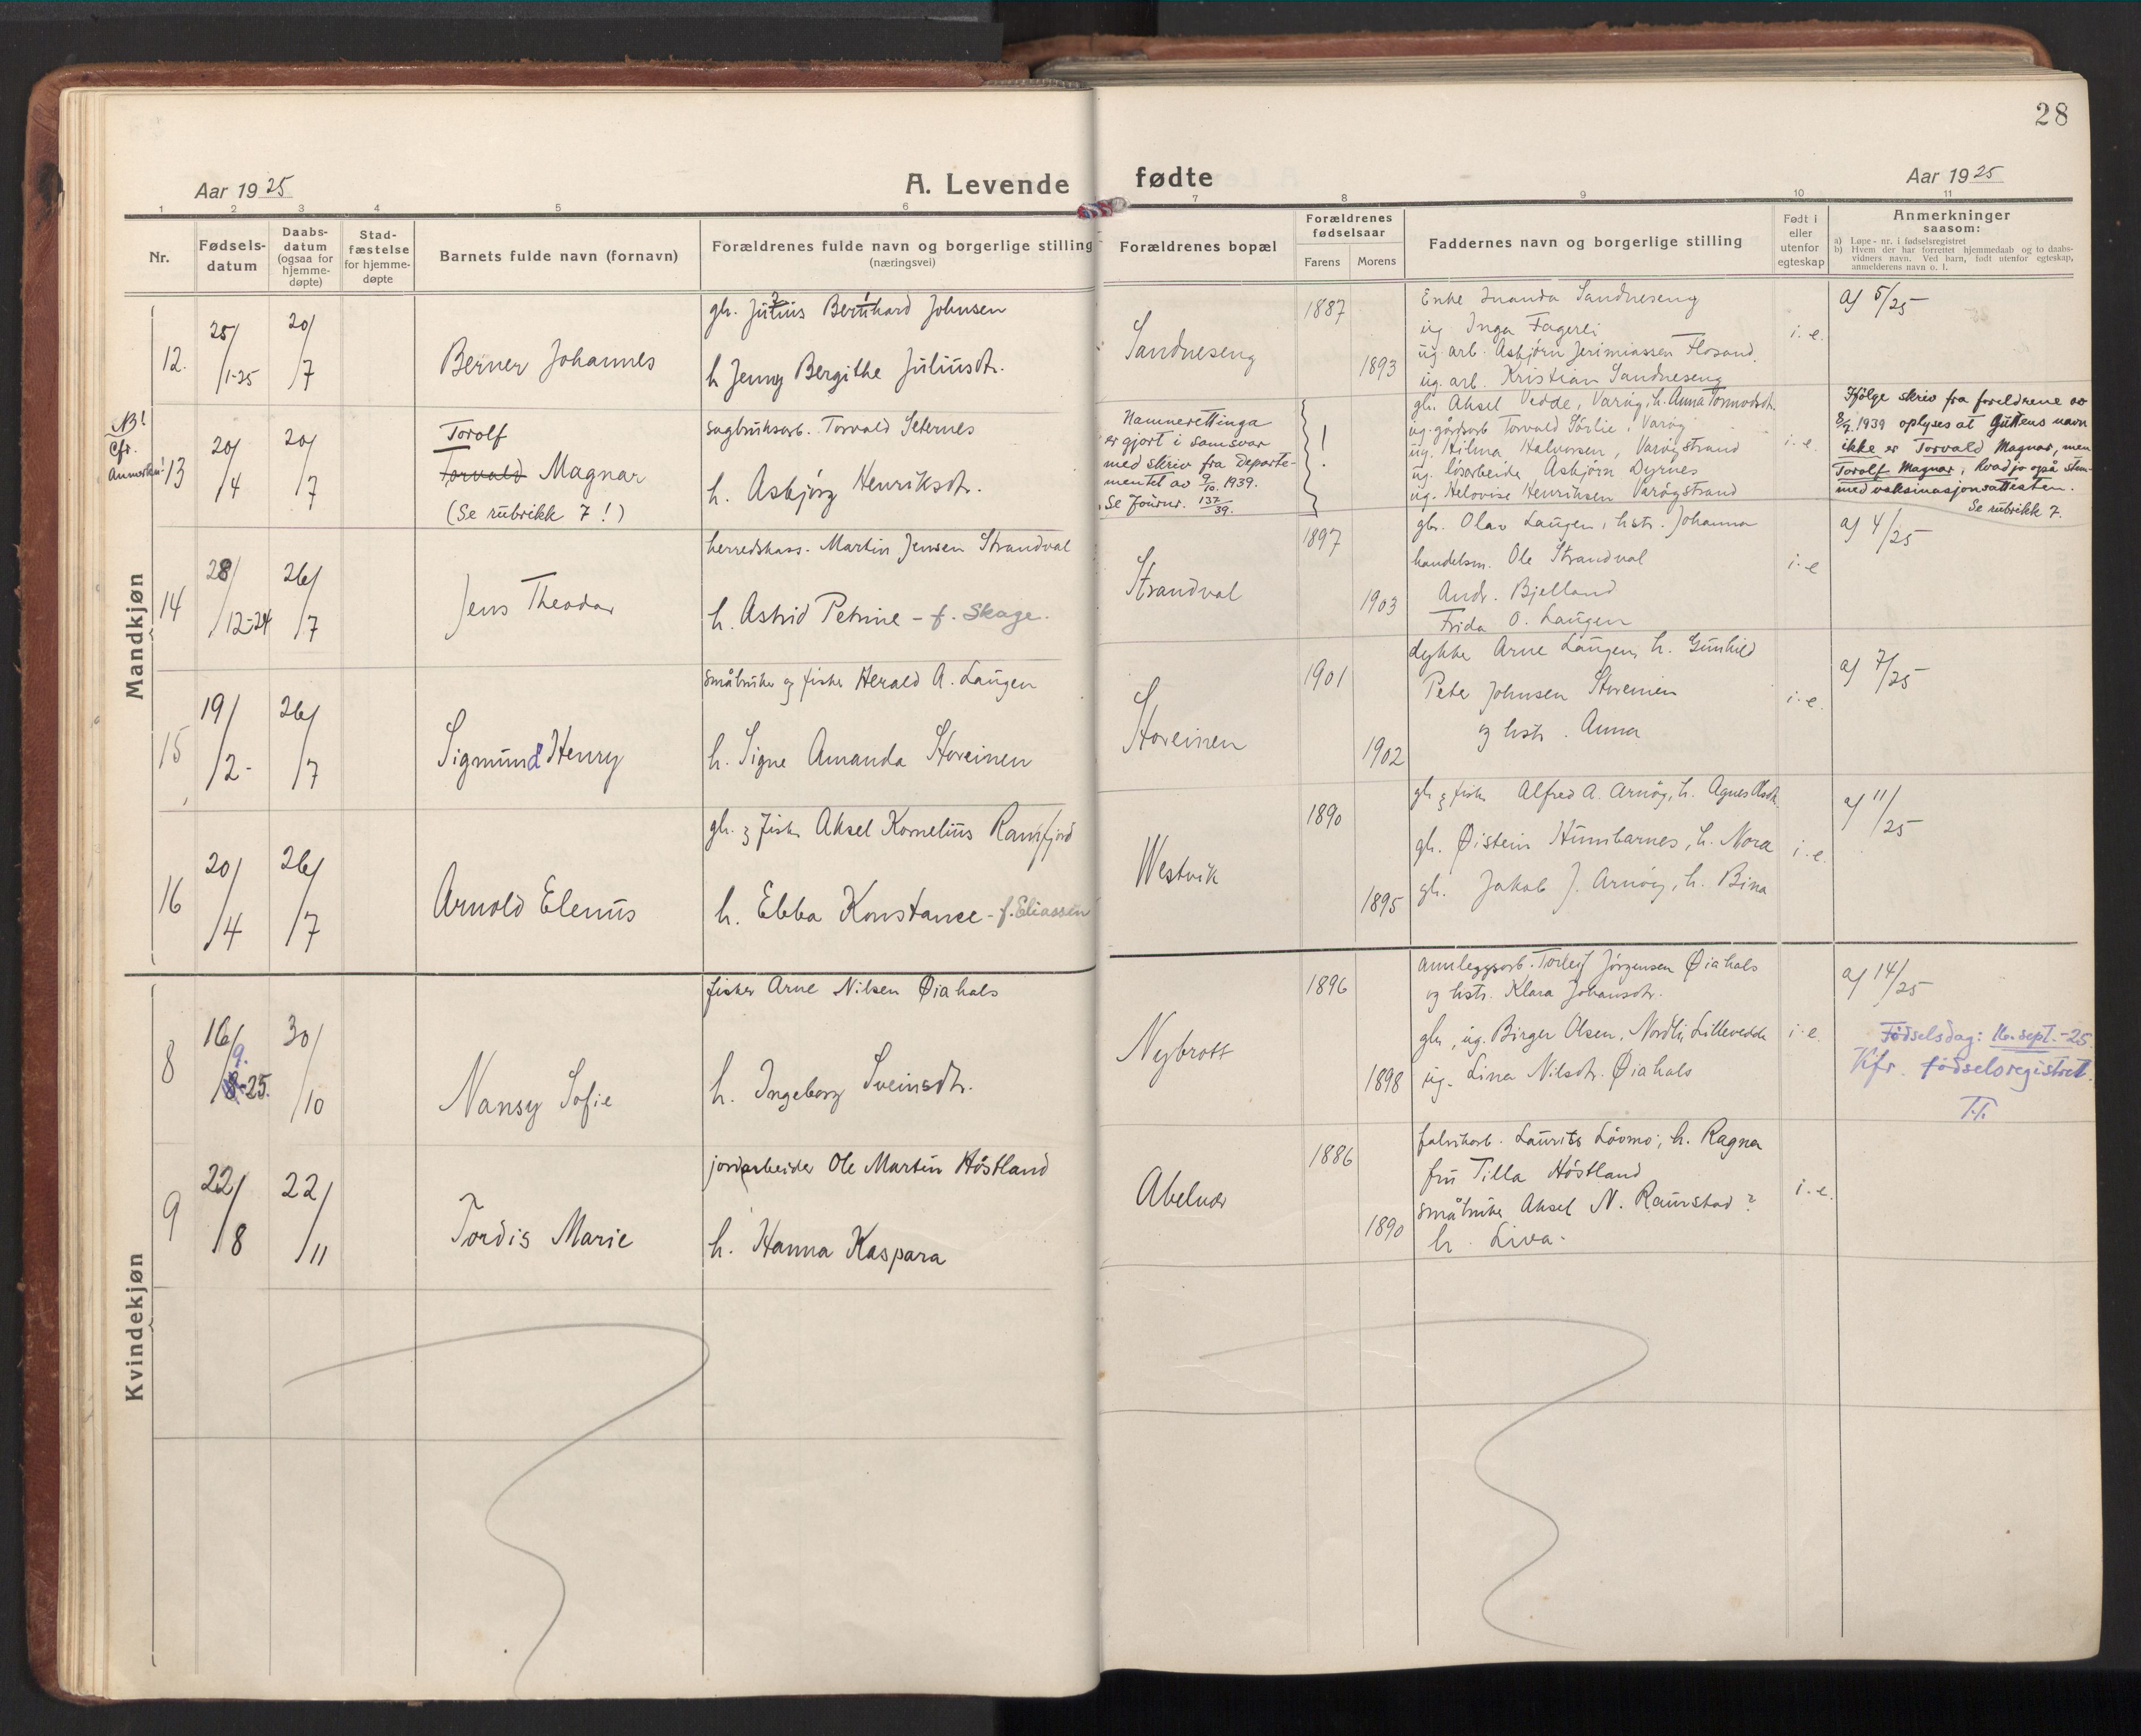 28
Aar 1925
A. Levende fødte
Aar 1925
1 2 3 4 5 6 7 8 9 10 11
Nr.
Fødsels-
datum
Daabs-
datum
(ogsaa for
hjemme-
døpte)
Stad-
fæstelse
for hjemme-
døpte
Barnets fulde navn (fornavn)
Forældrenes fulde navn og borgerlige stilling
(næringsvei)
Forældrenes bopæl
Forældrenes
fødselsaar
Farens
Morens
Faddernes navn og borgerlige stilling
Født i
eller
utenfor
egteskap
Anmerkninger
saasom:
a) Løpe-nr. i fødselsregistret
b) Hvem der har forrettet hjemmedaab og to daabs-
vidners navn. Ved barn, født utenfor egteskap,
anmelderens navn o. l.
Mandkjøn
12.
25/1-25
20/7
Berner Johannes
gbr. Julius Bernhard Johnsen
h Jenny Bergithe Juliusdtr.
Sandneseng
1887
1893
Enke Inanda Sandneseng
ug Inga Fagerli
ug. arb. Asbjørn Jerimiassen Flosand.
ug. arb. Kristian Sandneseng
i. e.
af 5/25
NB!
Cfr.
Anmerkn!
13
20/4
20/7
Torolf
Torvald Magnar
(Se rubrikk 7!)
sagbruksarb. Torvald Seternes
h. Asbjørg Henriksdtr.
Namnerettinga
er gjort i samsvar
med skriv fra Departe-
mentet av 9/10. 1939.
Se Journr. 137/39.
!
gbr. Aksel Vedde, Varøy, h. Anna Tormodsdtr.
ug. gårdsarb Torvald Sörlie, Varøy
ug. Hilma Halvorsen, Varøystrand
ug. løsarbeide Asbjörn Dyrnes
ug. Helovise Henriksen Varöystrand
i. e.
Ifølge skriv fra foreldrene av
8/9.1939 oplyses at Guttens navn
ikke er Torvald Magnar, men
Torolf Magnar, hvad jo også stem-
med vaksinasjonsattesten.
Se rubrikk 7.
14
28/12-24
26/7
Jens Theodor
herredskass. Martin Jensen Strandval
h. Astrid Petrine - f. Skage.
Strandval
1897
1903
gbr. Olav Laugen, hstr. Johanna
handelsm. Ole Strandval
Andr. Bjelland
Frida O. Laugen
i. e
af 4/25
15
19/2-
26/7
Sigmund Henry
småbruker og fisker Herald A. Laugen
h. Signe Amanda Storeinen
Storeinen
1901
1902
dykker Arne Laugen, h. Gunhild
Peter Johnsen Storeinen
og hstr. Anna
i. e.
af 7/25
16
20/4
26/7
Arnold Elenus
gbr. og fisker Aksel Kornelius Ramfjord
h. Ebba Konstance - f. Eliassen
Westvik
1890
1895
gbr og fisker Alfred A. Arnøy, h. Agnes Olsdtr.
gbr. Øistein Humbarnes, h. Nora
gbr. Jakob J. Arnøy, h. Bina
i. e.
af 11/25
Kvindekjøn
8
16/9. 8-25.
30/10
Nansy Sofie
fisker Arne Nilsen Øiahals
h. Ingeborg Sveinsdtr.
Nybrott
1896
1898
annleggsarb. Torleif Jörgensen Øiahals
og hstr. Klara Johansdtr.
gbr, ug. Birger Olsen, Nordli, Lillevedde
ug. Lina Nilsdtr. Øiahals
i. e.
af 14/25
Födselsdag: 16. sept. -25.
Kfr. födselsregistret.
9
22/8
22/11
Tordis Marie
jordarbeider Ole Martin Höstland
h. Hanna Kaspara
Abelvær
1886
1890
fabrikarb. Laurits Lövmo, h. Ragna
fru Tilla Höstland
småbruker Aksel N. Raunstad?
h. Liva.
i. e.